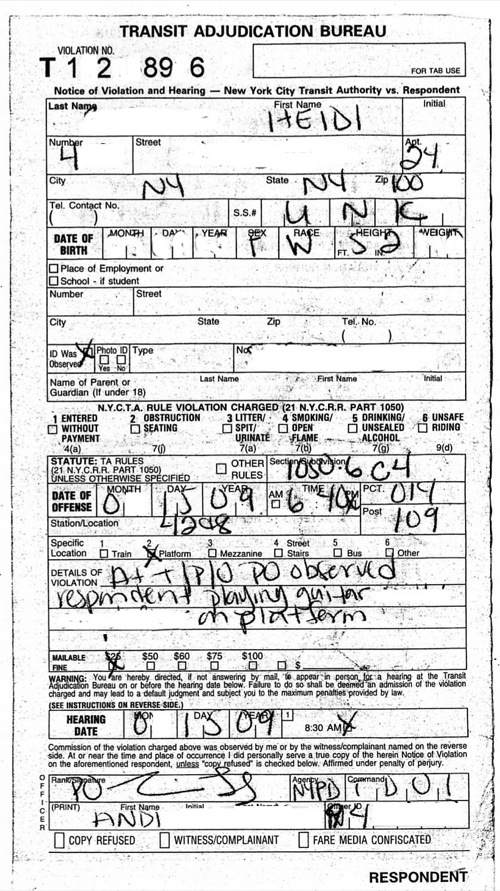 TRANSIT ADJUDICATION BUREAU
VIOLATION NO.
T 1 2 89 6
FOR TAB USE
Notice of Violation and Hearing — New York City Transit Authority vs. Respondent
Last Name First Name Initial
HEIDI
Number Street Apt.
4 24
City State Zip
NY NY 100
Tel. Contact No. ( ) S.S.# U N K
DATE OF BIRTH MONTH DAY YEAR SEX RACE HEIGHT WEIGHT
F W FT. 5 IN. 2
Place of Employment or
School - if student
Number Street
City State Zip Tel. No.
( )
ID Was Observed Photo ID Yes No Type No.
Name of Parent or Last Name First Name Initial
Guardian (If under 18)
N.Y.C.T.A. RULE VIOLATION CHARGED (21 N.Y.C.R.R. PART 1050)
1 ENTERED WITHOUT PAYMENT 4(a)
2 OBSTRUCTION SEATING 7(j)
3 LITTER/ SPIT/ URINATE 7(a)
4 SMOKING/ OPEN FLAME 7(b)
5 DRINKING/ UNSEALED ALCOHOL 7(g)
6 UNSAFE RIDING 9(d)
STATUTE: TA RULES
(21 N.Y.C.R.R. PART 1050)
UNLESS OTHERWISE SPECIFIED
OTHER RULES
Section/Subdivision
1050-6 C4
DATE OF OFFENSE MONTH DAY YEAR AM TIME PM PCT.
0 15 09 6 40 014
Station/Location Post
109
Specific Location 1 Train 2 Platform 3 Mezzanine 4 Street Stairs 5 Bus 6 Other
DETAILS OF VIOLATION At T/P/O PO observed
respondent playing guitar
on platform
MAILABLE FINE $25 $50 $60 $75 $100 $
WARNING: You are hereby directed, if not answering by mail, to appear in person for a hearing at the Transit
Adjudication Bureau on or before the hearing date below. Failure to do so shall be deemed an admission of the violation
charged and may lead to a default judgment and subject you to the maximum penalties provided by law.
(SEE INSTRUCTIONS ON REVERSE SIDE.)
HEARING DATE MON DAY YEAR 1
0 1 5 09 8:30 AM
Commission of the violation charged above was observed by me or by the witness/complainant named on the reverse
side. At or near the time and place of occurrence I did personally serve a true copy of the herein Notice of Violation
on the aforementioned respondent, unless "copy refused" is checked below. Affirmed under penalty of perjury.
OFFICER
Rank/Signature Agency Command
PO NYPD T D 0 1
(PRINT) First Name Initial Officer ID
ANDI 4
COPY REFUSED WITNESS/COMPLAINANT FARE MEDIA CONFISCATED
RESPONDENT